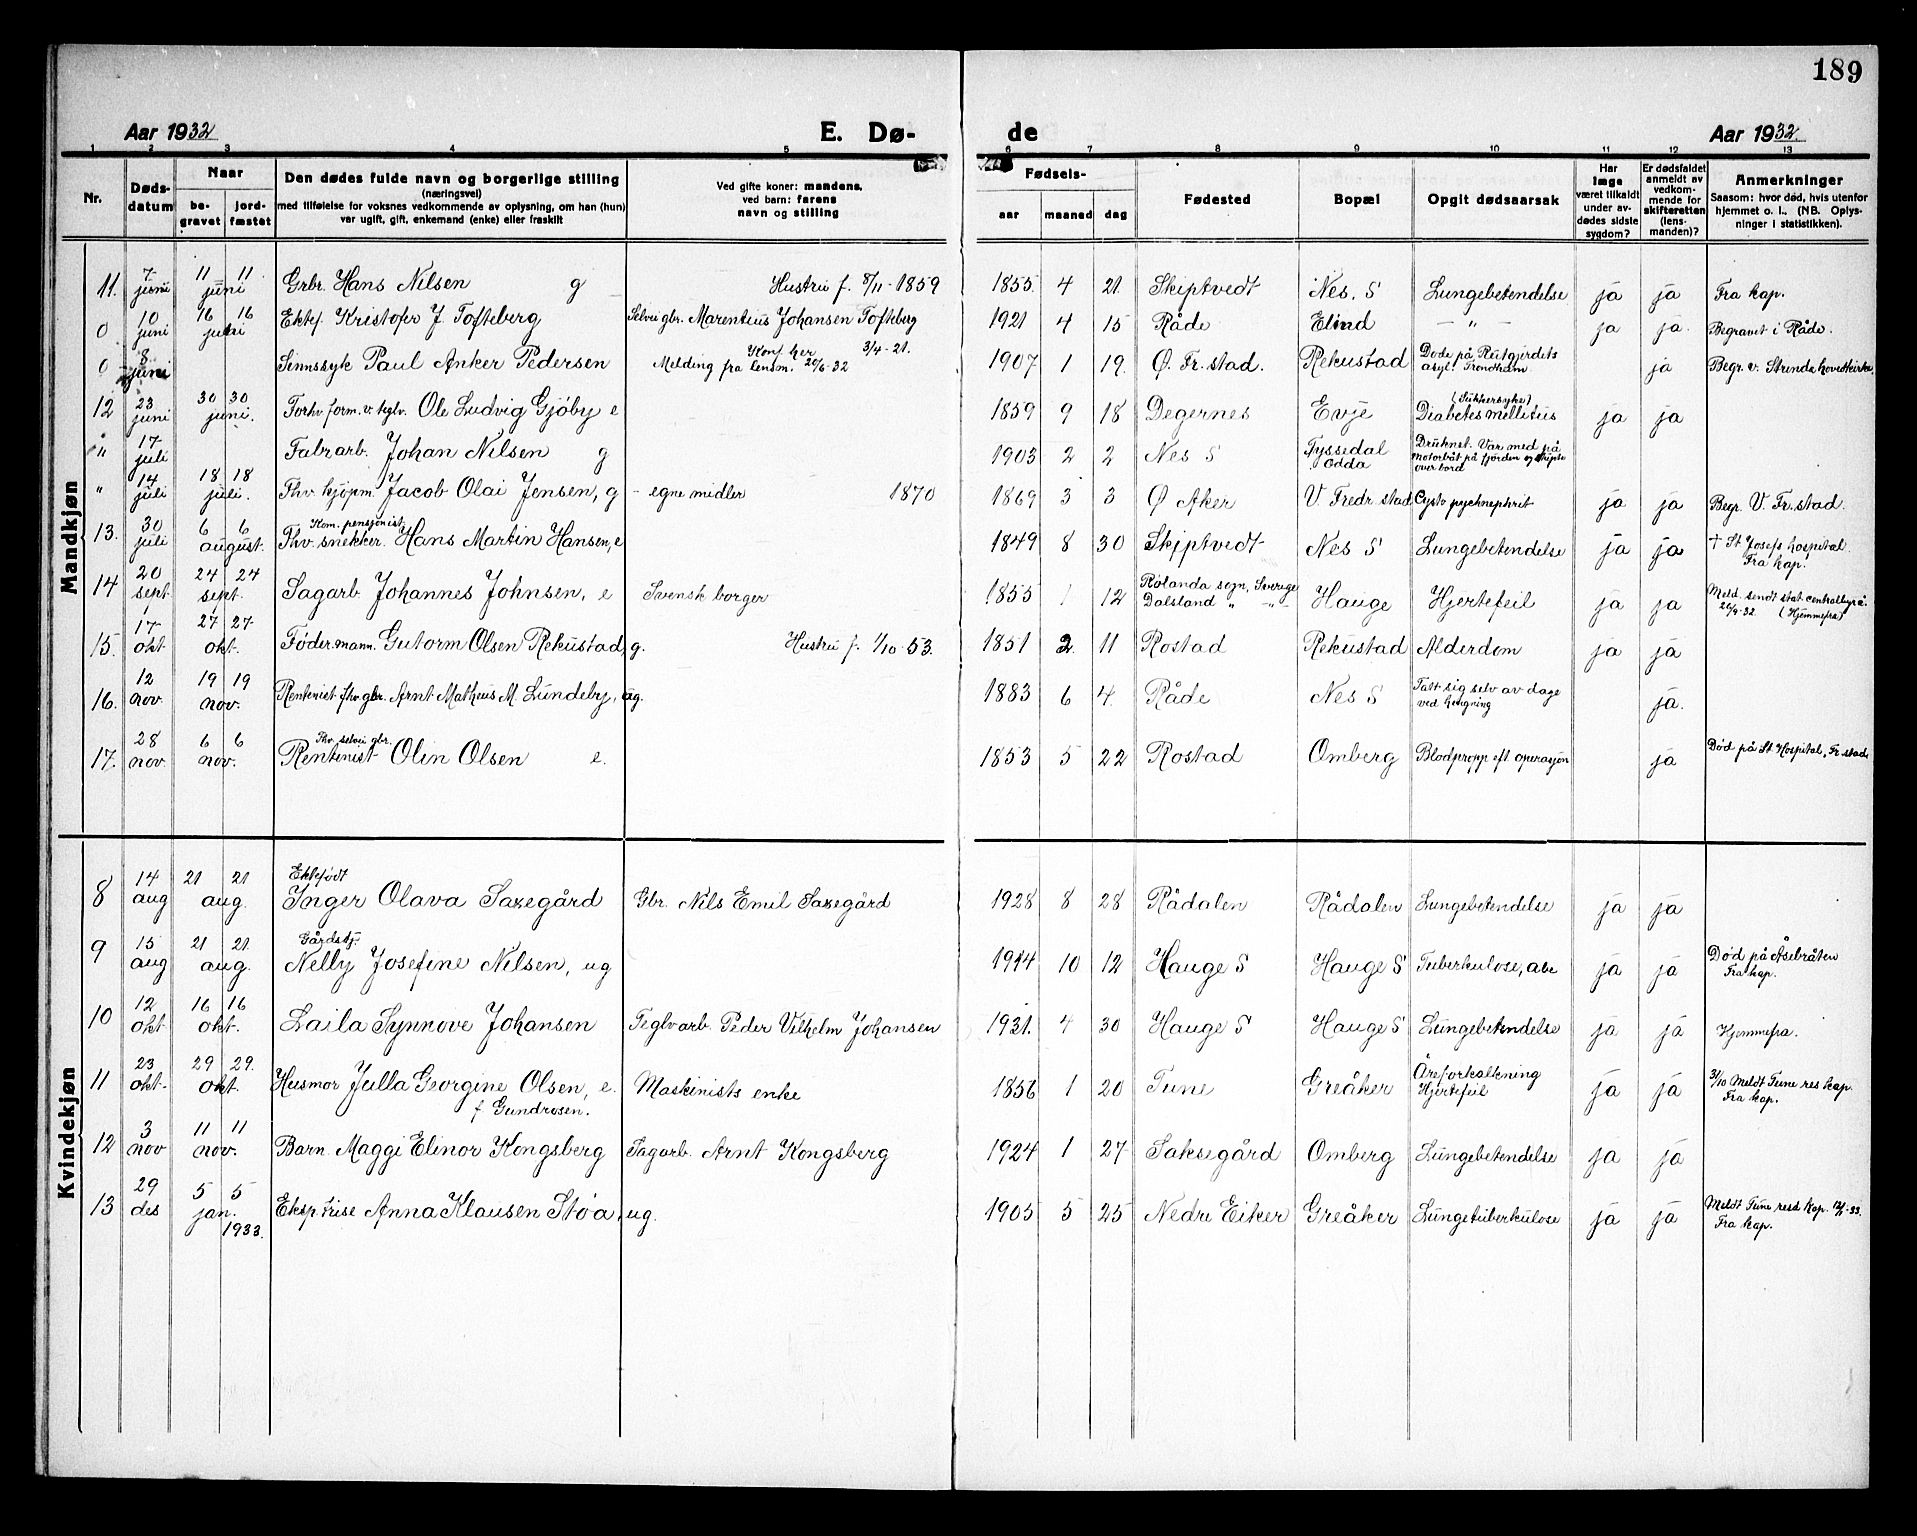 189
Aar 1932 E. Dø- de Aar 1932.
1 2 3 4 5 6 7 8 9 10 11 12 13
Nr. Døds-datum Naar be-gravet jord-fæstet Den dødes fulde navn og borgerlige stilling (næringsvei) med tilføielse for voksnes vedkommende av oplysning, om han (hun) var ugift, gift, enkemand (enke) eller fraskilt Ved gifte koner: mandens, ved barn: farens navn og stilling Fødsels- aar maaned dag Fødested Bopæl Opgit dødsaarsak Har læge været tilkaldt under av-dødes sidste sygdom? Er dødsfaldet anmeldt av vedkom-mende for skifteretten (lens-manden)? Anmerkninger Saasom: hvor død, hvis utenfor hjemmet o. l., (NB. Oplys-ninger i statistikken).
Mandkjøn
11. 7 juni 11 11 juni Grbr. Hans Nilsen g Hustru f. 8/11-1859 1855 4 21. Skiptvedt Nes. S Lungebetendelse ja ja Fra kap.
0 10 juni 16 16 juni Ektef. Kristofer J. Tofteberg Selvei gbr. Marentius Johansen Tofteberg 3/4-21. 1921 4 15 Råde Elind — " — ja ja. Begravet i Råde.
0 8 juni Sinnssyk Paul Anker Pedersen Konf. her Melding fra lensm. 20/6-32 1907 1 19. Ø. Fr. stad. Rekustad Døde på Rutgjerdets asyl. Trondhjem ja Begr. v. Strinda hovedkirke.
12 23 juni 30 30 juni. Forhv. form. v. teglv. Ole Ludvig Gjøby e 1859 9 18 Degernes Evje (Sukkersyke) Diabetes mellitus ja ja
" 17 juli Fabr.arb. Johan Nilsen g 1903 2 2 Nes S Tyssedal Odda Druknet. Var med på motorbåt på fjorden og skipte over bord
" 14 juli 18 18 juli. Fhv. kjøpm. Jacob Olai Jensen, g - egne midler 1870 1869 3 3 Ø Aker V. Fredr. stad Cysto pychnephrit ja ja Begr. V. Fr. stad.
13. 30 juli 6 6 august. Kom. pensjonist Fhv. snekker. Hans Martin Hansen, e 1849 8 30 Skjptvedt Nes S Lungebetendelse ja ja + St Josefs hospital. Fra kap.
14 20 sept. 24 24 sept. Sagarb. Johannes Johnsen, e Svensk borger 1855 1 12 Rölanda sogn, Sverige Dalsland " — " — Hauge Hjertefeil ja ja Meld. sendt stat. centralbyrå 26/9-32. (Hjemmefra)
15. 17 okt 27 27 okt. Födermann. Gutorm Olsen Rekustad, g. Hustru f. 1/10-53. 1851 2. 11 Rostad Rekustad Alderdom ja ja
16. 12 nov. 19 19 nov. Rentenist fhv. gbr. Arnt Matheus M. Lundeby, ug. 1883 6 4. Råde Nes S Tatt sig selv av dage ved hengning ja.
17. 28 nov. 6 6 nov. Fhv. selvei gbr. Rentenist Olin Olsen e. 1853 5 22 Rostad Omberg Blodpropp eft. operasjon ja Død på St Hospital, Fr. stad
Kvindekjøn
8 14 aug 21 21 aug. Ektefødt Inger Olava Saxegård Gbr. Nils Emil Saxegård 1928 8 28 Rådalen Rådalen Lungebetendelse ja ja
9 15 aug 21 21. aug. Gårdstj. Nelly Josefine Nilsen, ug 1914 10 12 Hauge S Hauge S Tuberkulose, abc ja ja Død på Åsebråten Fra kap.
10 12 okt 16 16 okt. Laila Synnøve Johansen Teglvarb. Peder Vilhelm Johansen 1931. 4 30 Hauge S Hauge S Lungebetendelse ja ja Hjemmefra.
11 23 okt. 29 29. okt. Husmor Julla Georgine Olsen, e. f. Gundrosen. Maskinists enke 1856 1 20 Tune Greåker Åreforkalkning Hjertefeil ja ja 3/10 Meldt Tune res kap. Fra kap.
12 3 nov 11 11 nov. Barn Maggi Elinor Kongsberg Sagarb. Arnt Kongsberg 1924 1 27 Saksegård Omberg Lungebetendelse ja ja
13 29 des 5 5 jan. 1933. Eksp. trise Anna Klausen Støa, ug. 1905 5 25 Nedre Eiker Greåker Lungetuberkulose ja ja Meldt Tune resd kap. 12/1-33. Fra kap.